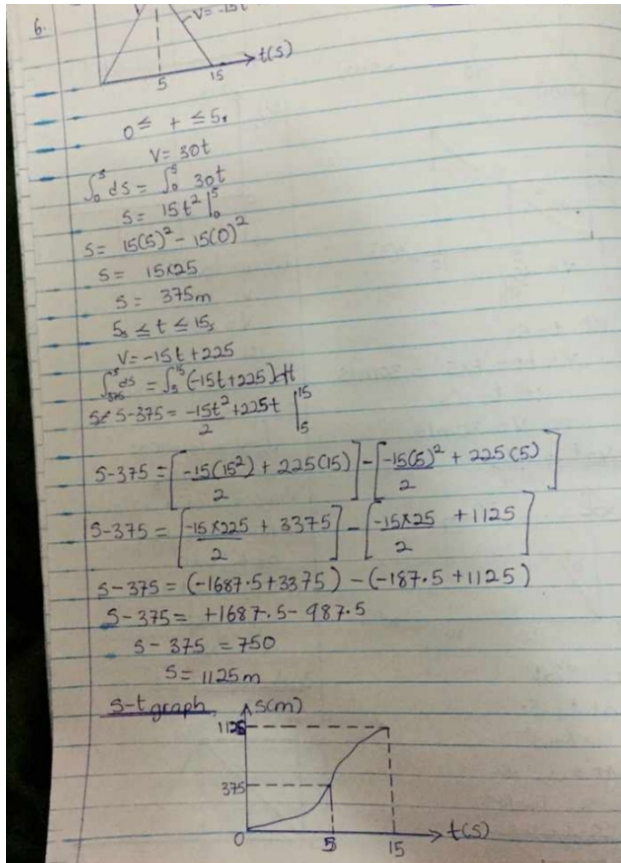 6.
V=-15t
t(s)
5 15
0 ≤ t ≤ 5s
V = 30t
∫₀ˢ ds = ∫₀⁵ 30t
s = 15t² |₀⁵
s = 15(5)² - 15(0)²
s = 15×25
s = 375m
5s ≤ t ≤ 15s
V = -15t + 225
∫₃₇₅ˢ ds = ∫₅¹⁵ (-15t+225) dt
s-375 = -15t²/2 + 225t |₅¹⁵
s-375 = [-15(15²)/2 + 225(15)] - [-15(5)²/2 + 225(5)]
s-375 = [-15×225/2 + 3375] - [-15×25/2 + 1125]
s-375 = (-1687.5+3375) - (-187.5+1125)
s-375 = +1687.5 - 987.5
s-375 = 750
s = 1125m
s-t graph
s(m)
1125
375
0 5 15 t(s)